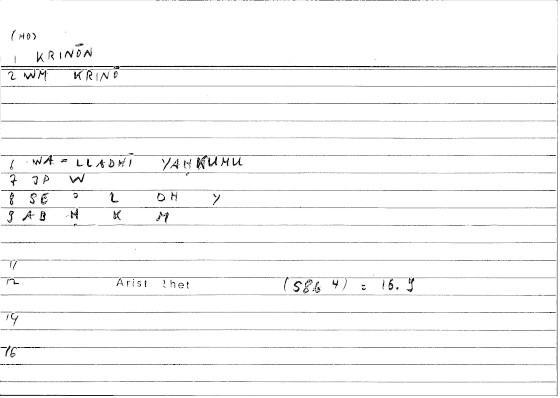 (HO)
1 KRINŌN
2 WM KRINŌ
6 WA-LLADHĪ YAḤKUMU
7 JP W
8 SE ɔ L DH Y
9 AB Ḥ K M
11
12 Arist Rhet (586 4) = 16.9
14
16